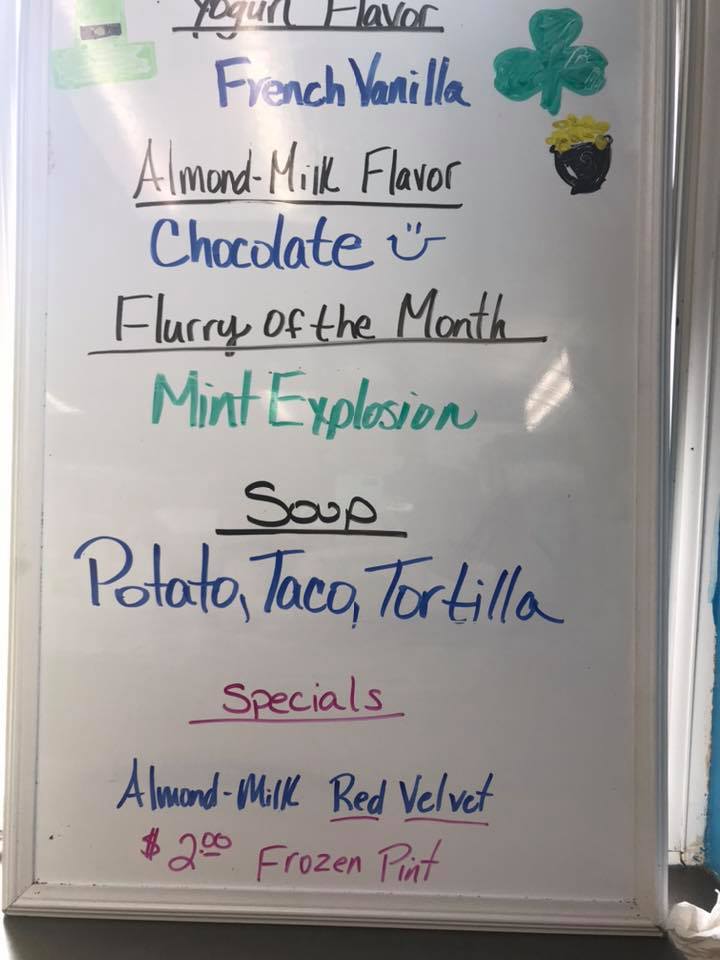 Yogurt Flavor
French Vanilla
Almond-Milk Flavor
Chocolate
Flurry of the Month
Mint Explosion
Soup
Potato, Taco, Tortilla
Specials
Almond-Milk Red Velvet
$2.00 Frozen Pint